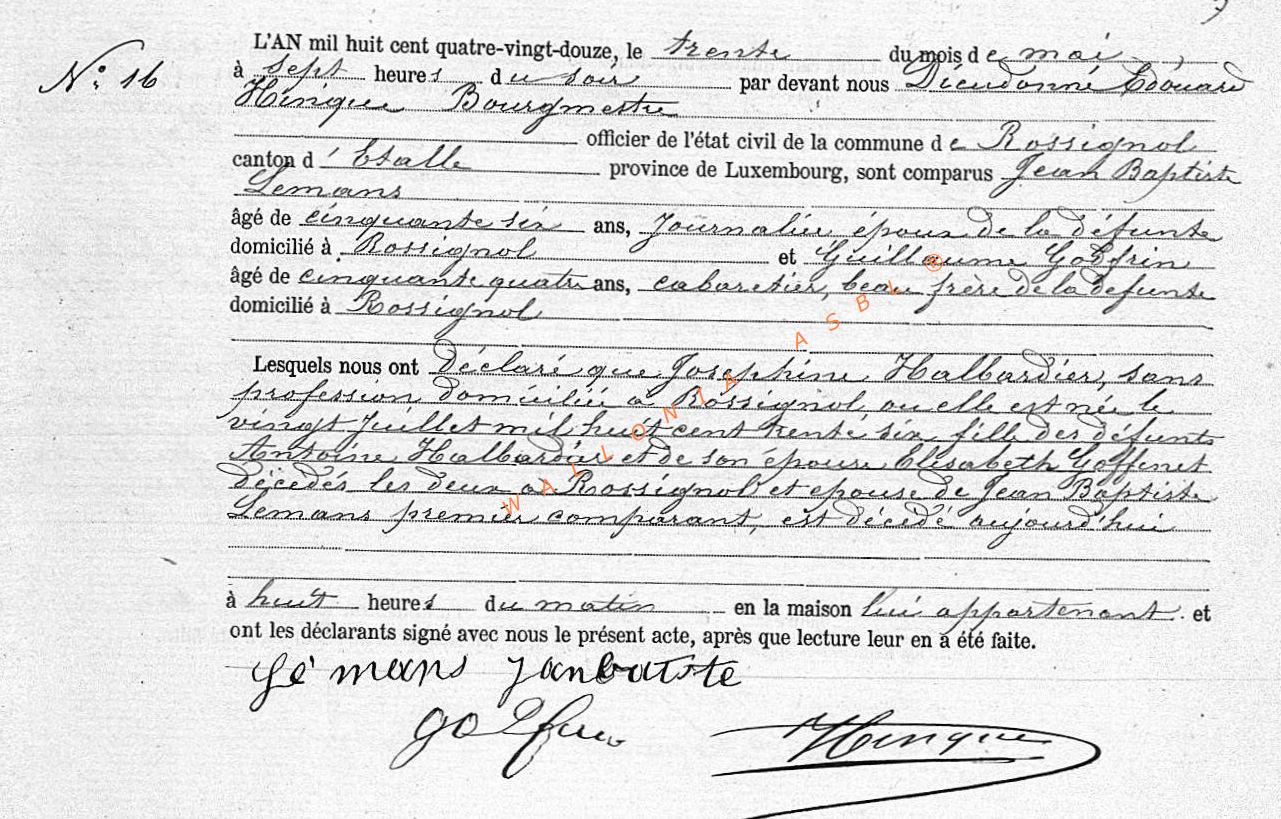 L'AN mil huit cent quatre-vingt-douze, le trente du mois de mai,
N° 16
à sept heures du soir par devant nous Dieudonné Edouard
Hinique Bourgmestre
officier de l'état civil de la commune de Rossignol
canton d'Etalle province de Luxembourg, sont comparus Jean Baptiste
Lemans
âgé de cinquante six ans, Journalier, époux de la défunte
domicilié à Rossignol et Guillaume Godfrin
âgé de cinquante quatre ans, cabaretier, beau frère de la défunte
domicilié à Rossignol
Lesquels nous ont déclaré que Josephine Halbardier, sans
profession domiciliée a Rossignol, ou elle est née le
vingt Juillet mil huit cent trente six fille des défunts
Antoine Halbardier et de son épouse Elisabeth Goffinet
décedés les deux a Rossignol et epouse de Jean Baptiste
Lemans premier comparant, est décédé aujourd'hui
à huit heures du matin en la maison lui appartenant et
ont les déclarants signé avec nous le présent acte, après que lecture leur en a été faite.
Lé mans Janbatiste
godfrin
Hinque
WALLONIA ASBL ®